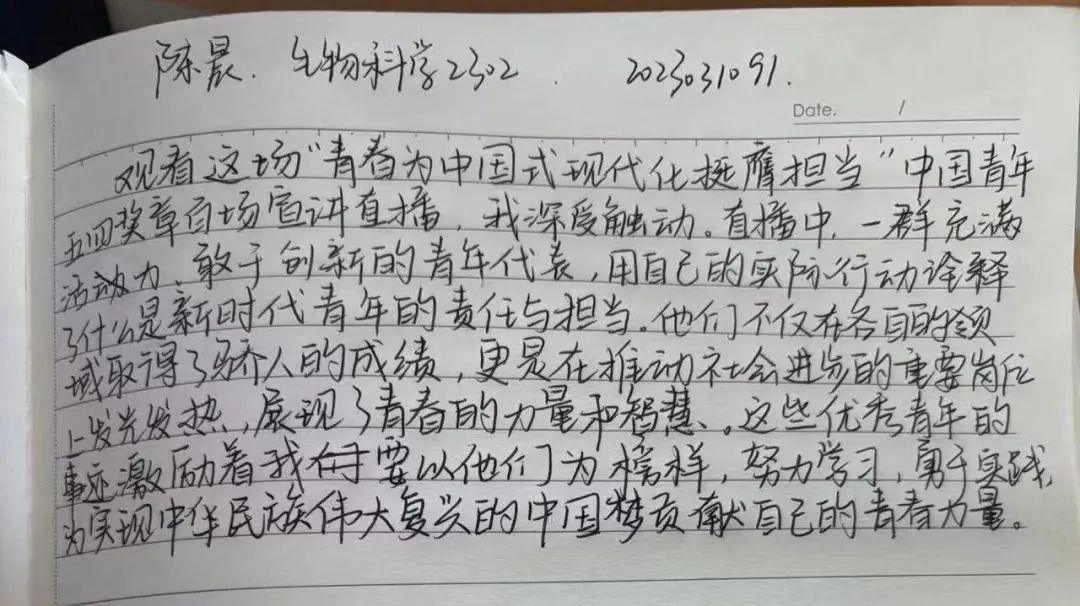 陈晨. 生物科学2302. 2023031091.
Date. /
观看这场“青春为中国式现代化挺膺担当”中国青年
五四奖章百场宣讲直播,我深受触动。直播中,一群充满
活动力、敢于创新的青年代表,用自己的实际行动诠释
了什么是新时代青年的责任与担当。他们不仅在各自的领
域取得了骄人的成绩,更是在推动社会进步的重要岗位
上发光发热,展现了青春的力量和智慧。这些优秀青年的
事迹激励着我要以他们为榜样,努力学习,勇于实践,
为实现中华民族伟大复兴的中国梦贡献自己的青春力量。